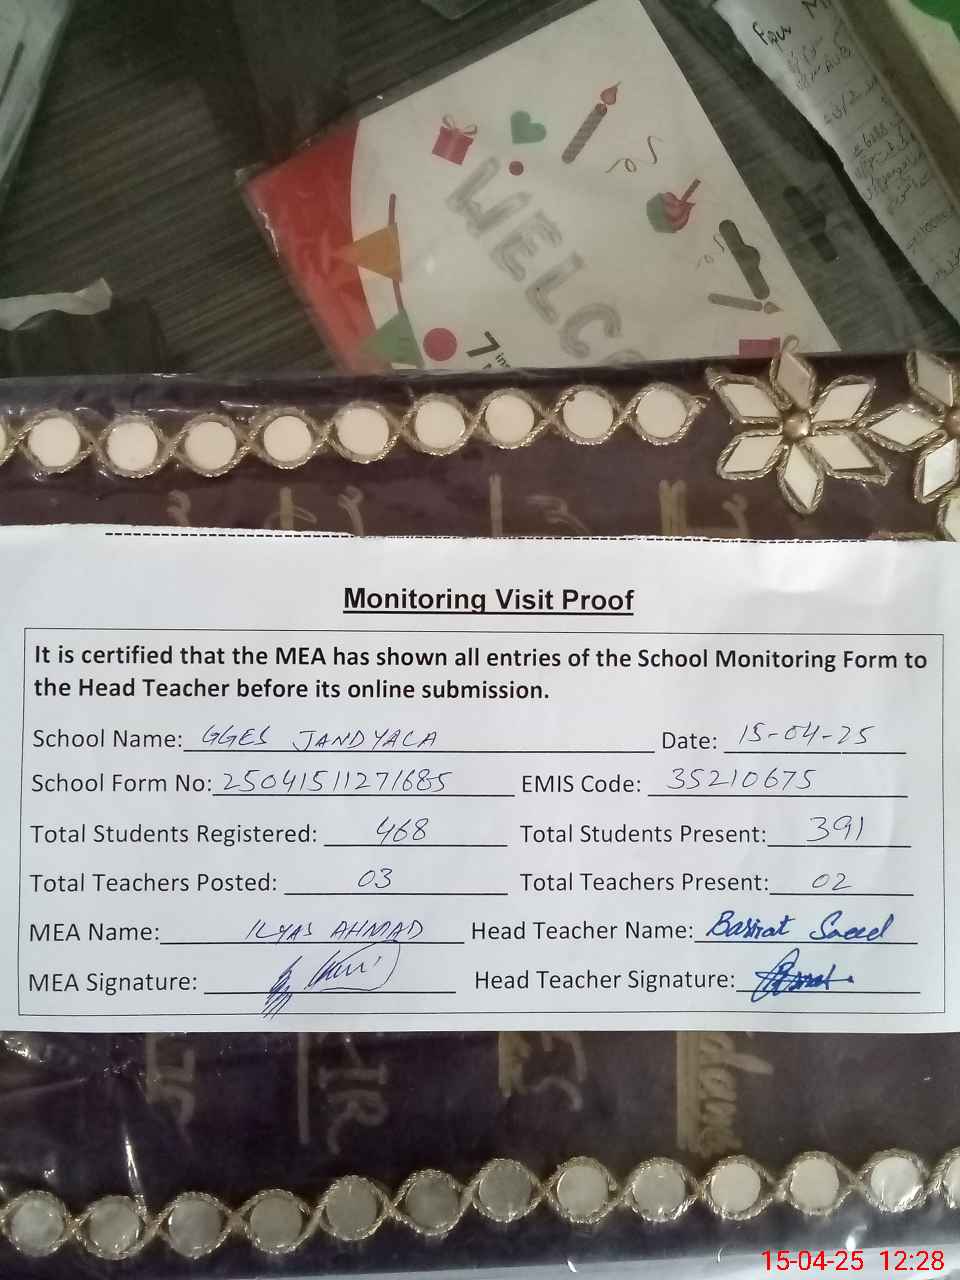 WELC
7
Monitoring Visit Proof
It is certified that the MEA has shown all entries of the School Monitoring Form to
the Head Teacher before its online submission.
School Name: GGES JANDYALA Date: 15-04-25
School Form No: 25041511271685 EMIS Code: 35210675
Total Students Registered: 468 Total Students Present: 391
Total Teachers Posted: 03 Total Teachers Present: 02
MEA Name: ILYAS AHMAD Head Teacher Name: Basirat Saeed
MEA Signature: Head Teacher Signature:
15-04-25 12:28